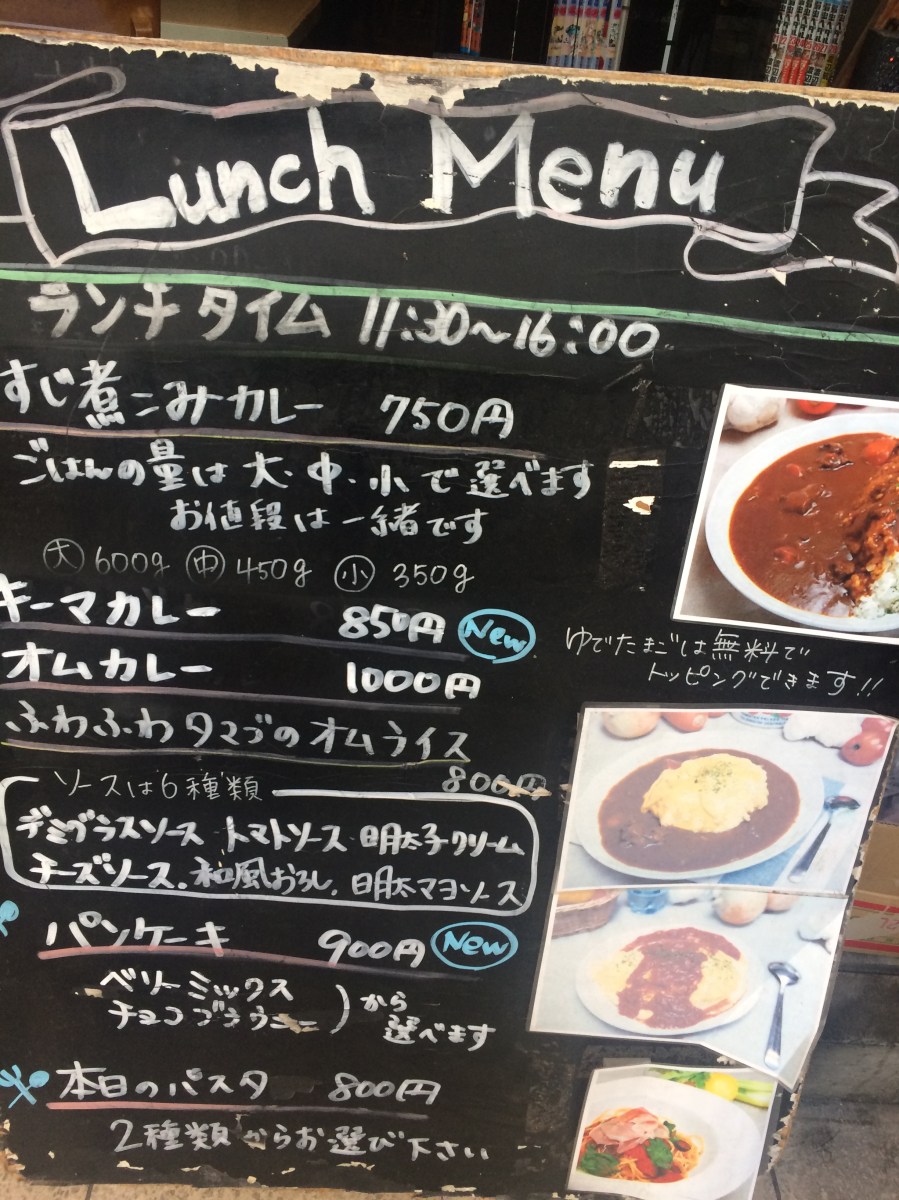 Lunch Menu
ランチタイム 11:30〜16:00
すじ煮こみカレー 750円
ごはんの量は大・中・小で選べます
お値段は一緒です
大 600g 中 450g 小 350g
キーマカレー 850円 New
ゆでたまごは無料で
トッピングできます!!
オムカレー 1000円
ふわふわタマゴのオムライス
800円
ソースは6種類
デミグラスソース トマトソース 明太子クリーム
チーズソース. 和風おろし. 明太マヨソース
パンケーキ 900円 New
ベリーミックス
チョコブラウニー
)から
選べます
本日のパスタ 800円
2種類からお選び下さい